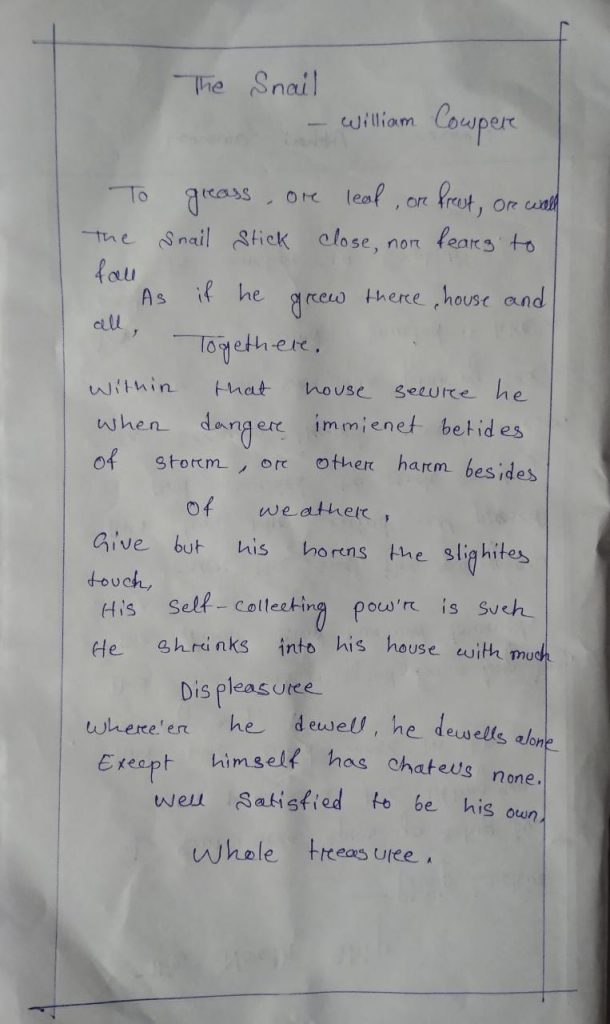 The Snail
- William Cowper
To grass, or leaf, or frut, or wall
The Snail Stick close, nor fears to
fall
As if he grew there, house and
all,
Together.
Within that house secure he
When danger immienet betides
Of storm, or other harm besides
Of weather,
Give but his horns the slighites
touch,
His Self-collecting pow'r is such
He shrinks into his house with much
Displeasure
Where'er he dewell, he dewells alone
Except himself has chatells none.
Well Satisfied to be his own,
Whole treasure.